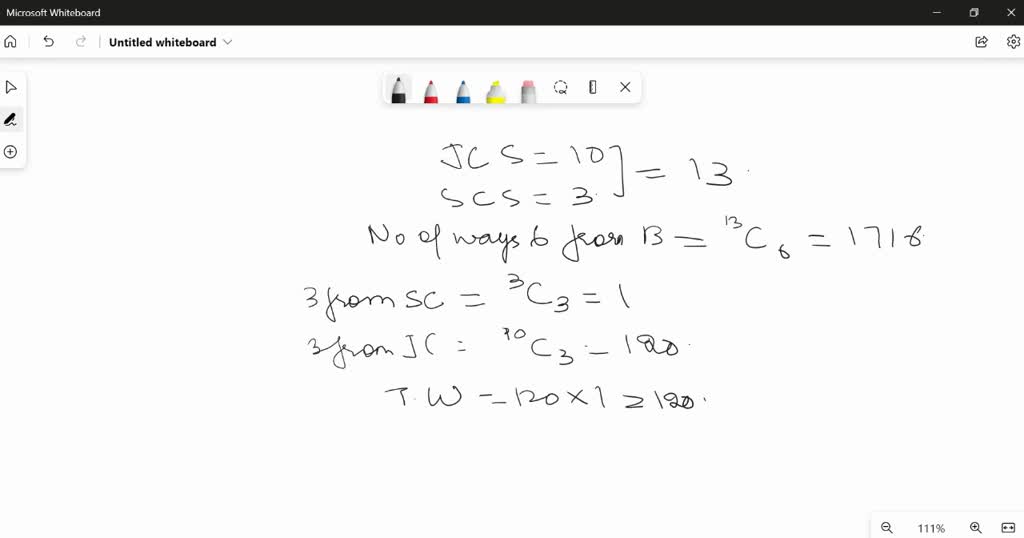 Microsoft Whiteboard
Untitled whiteboard
JCS = 10
SCS = 3. ] = 13.
No of ways 6 from B = ¹³C₆ = 1716
3 from SC = ³C₃ = 1
3 from JC = ¹⁰C₃ - 120.
T.W = 120 × 1 = 120.
111%